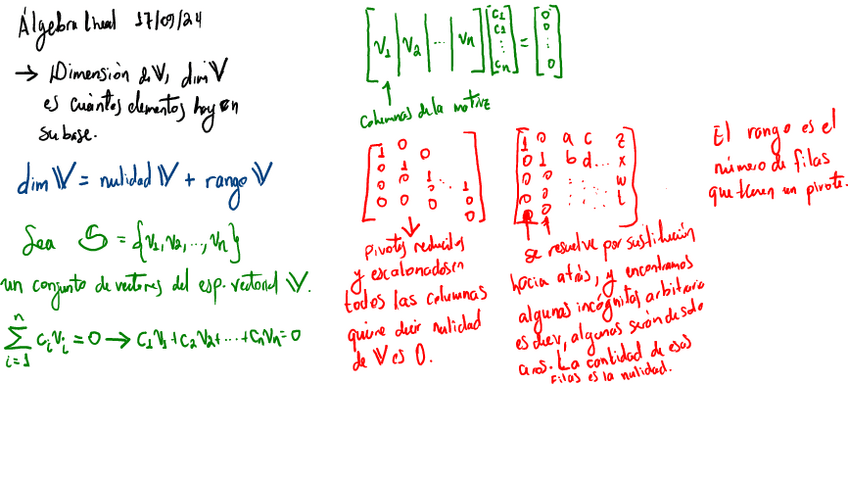 Álgebra lineal 17/09/24
→ Dimensión de V, dim V
es cuántos elementos hay en
su base.
dim V = nulidad V + rango V
Sea S = {v₁, v₂, ..., vₙ}
un conjunto de vectores del esp. vectorial V.
n
∑ cᵢvᵢ = 0 → c₁v₁ + c₂v₂ + ... + cₙvₙ = 0
i=1
[v₁ | v₂ | ... | vₙ] [c₁ c₁ ⋮ cₙ] = [0 0 ⋮ 0]
↑
columnas de la
pivotes reducidos
y escalonados en
todos las columnas
quiere decir nulidad
de V es 0.
1 0 a c z
0 1 b d... x
0 0 w
0 0 t
0 0
se resuelve por sustitución
hacia atrás, y encontramos
algunas incógnitas arbitraria
es decir, algunas serán de solo
La cantidad de esas
filas es la nulidad.
El rango es el
número de filas
que tienen un pivote.